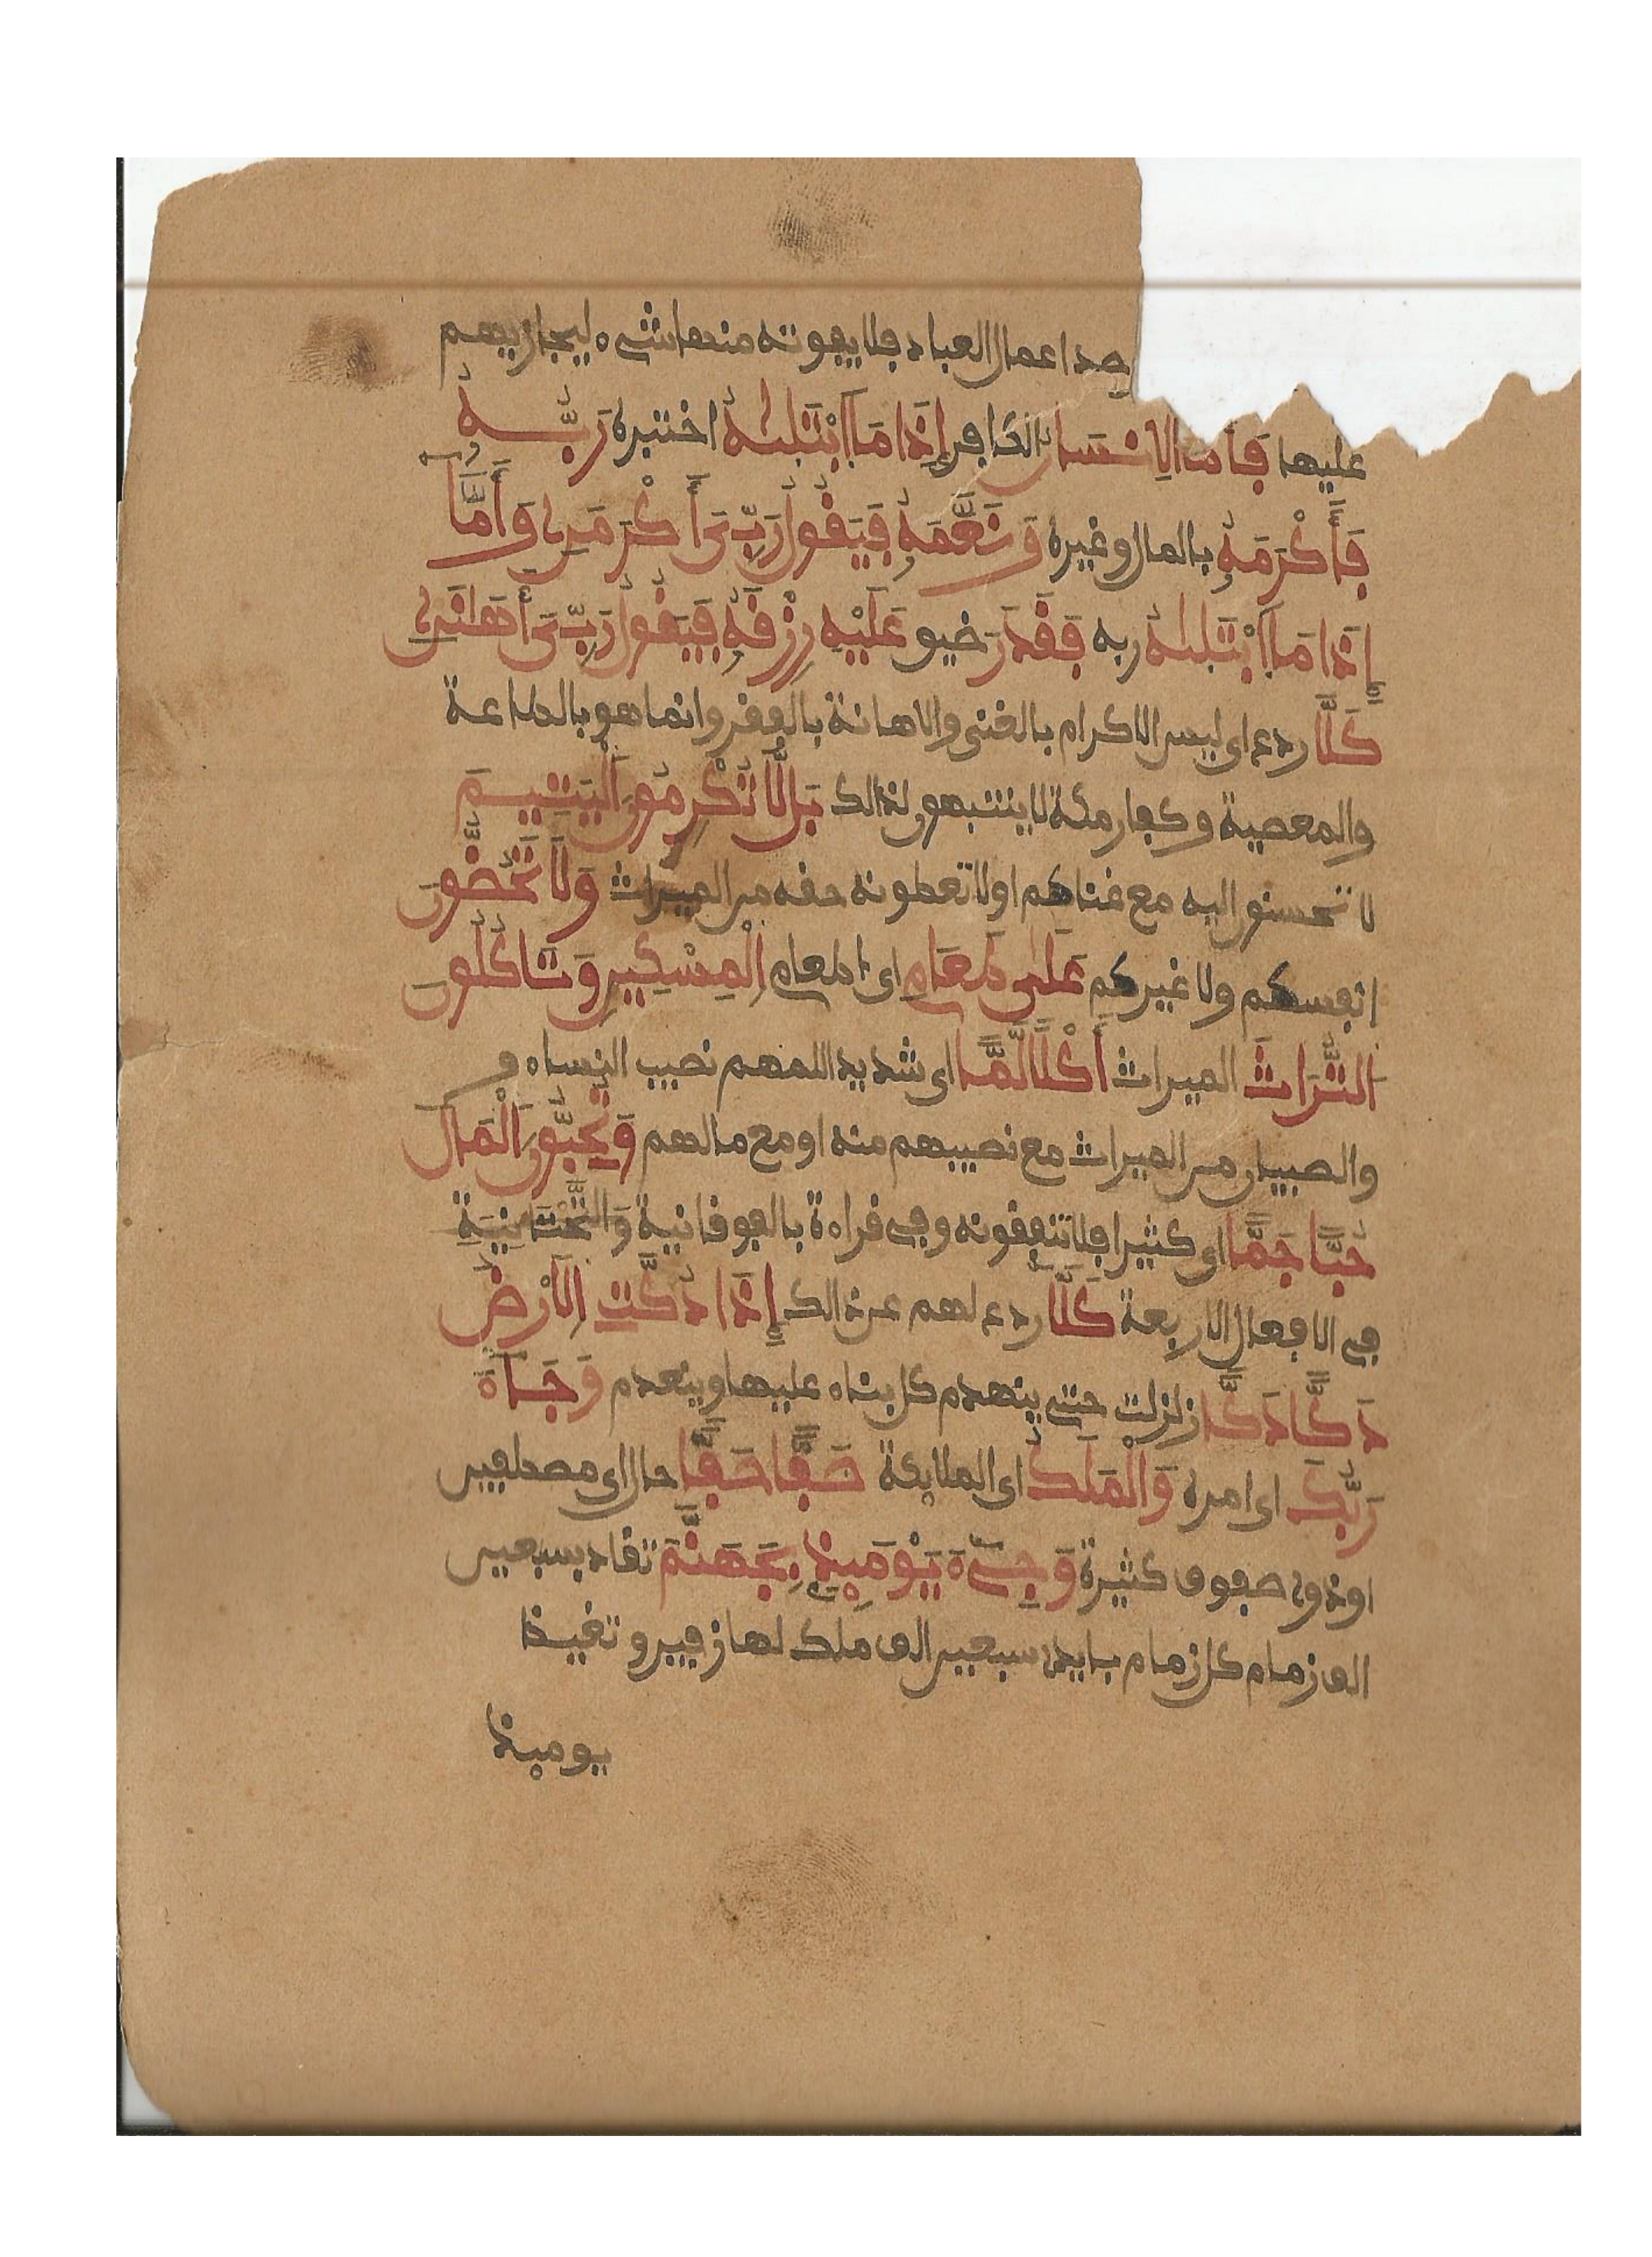 صد اعمال العباد فلا يفوته منها شيء ليجازيهم
عليها فَأَمَّا اَلِانسَانُ الكافر إِذَا مَا اَبْتَلَيٰهُ اختبره رَبُّهُ
فَأَكْرَمَهُ بالمال وغيره وَنَعَّمَهُ فَيَقُولُ رَبِّيَ أَكْرَمَنِ وَأَمَّا
إِذَا مَا اَبْتَلَيٰهُ ربه فَقَدَرَ ضيق عَلَيْهِ رِزْقَهُ فَيَقُولُ رَبِّيَ أَهَانَنِ
كَلَّا ردع اى ليس الاكرام بالغنى والاهانة بالفقر وانما هو بالطاعة
والمعصية وكفار مكة لا ينتبهون لذالك بَل لَّا تُكْرِمُونَ اَلْيَتِيمَ
لا تحسنون اليه مع غناهم اولا تعطونه حقه من الميراث وَلَا تَحُضُّونَ
انفسكم ولا غيركم عَلَىٰ طَعَامِ اى اطعام اِلْمِسْكِينِ وَتَاكُلُونَ
اَلتُّرَاثَ الميراث أَكْلًا لَّمًّا اى شديد اللمهم نصيب النساء و
والصبيان من الميراث مع نصيبهم منه او مع مالهم وَتُحِبُّونَ اَلْمَالَ
حُبًّا جَمًّا اى كثيرا فلا تنفقونه وفى قراءة بالفوقانية وَالتَّحْتَانِيَةِ
فى الافعال الاربعة كَلَّا ردع لهم عن ذالك إِذَا دُكَّتِ اِلَارْضُ
دَكًّا دَكًّا زلزلت حتى ينهدم كل بناء عليها وينعدم وَجَاءَ
رَبُّكَ اى امره وَالْمَلَكُ اى الملائكة صَفًّا صَفًّا حال اى مصطفين
اوذوى صفوف كثيرة وَجِاْىءَ يَوْمَئِذٍ بِجَهَنَّمَ تقاد بسبعين
الف زمام كل زمام بايدى سبعين الف ملك لها زفير وتغيظا
يومئذ